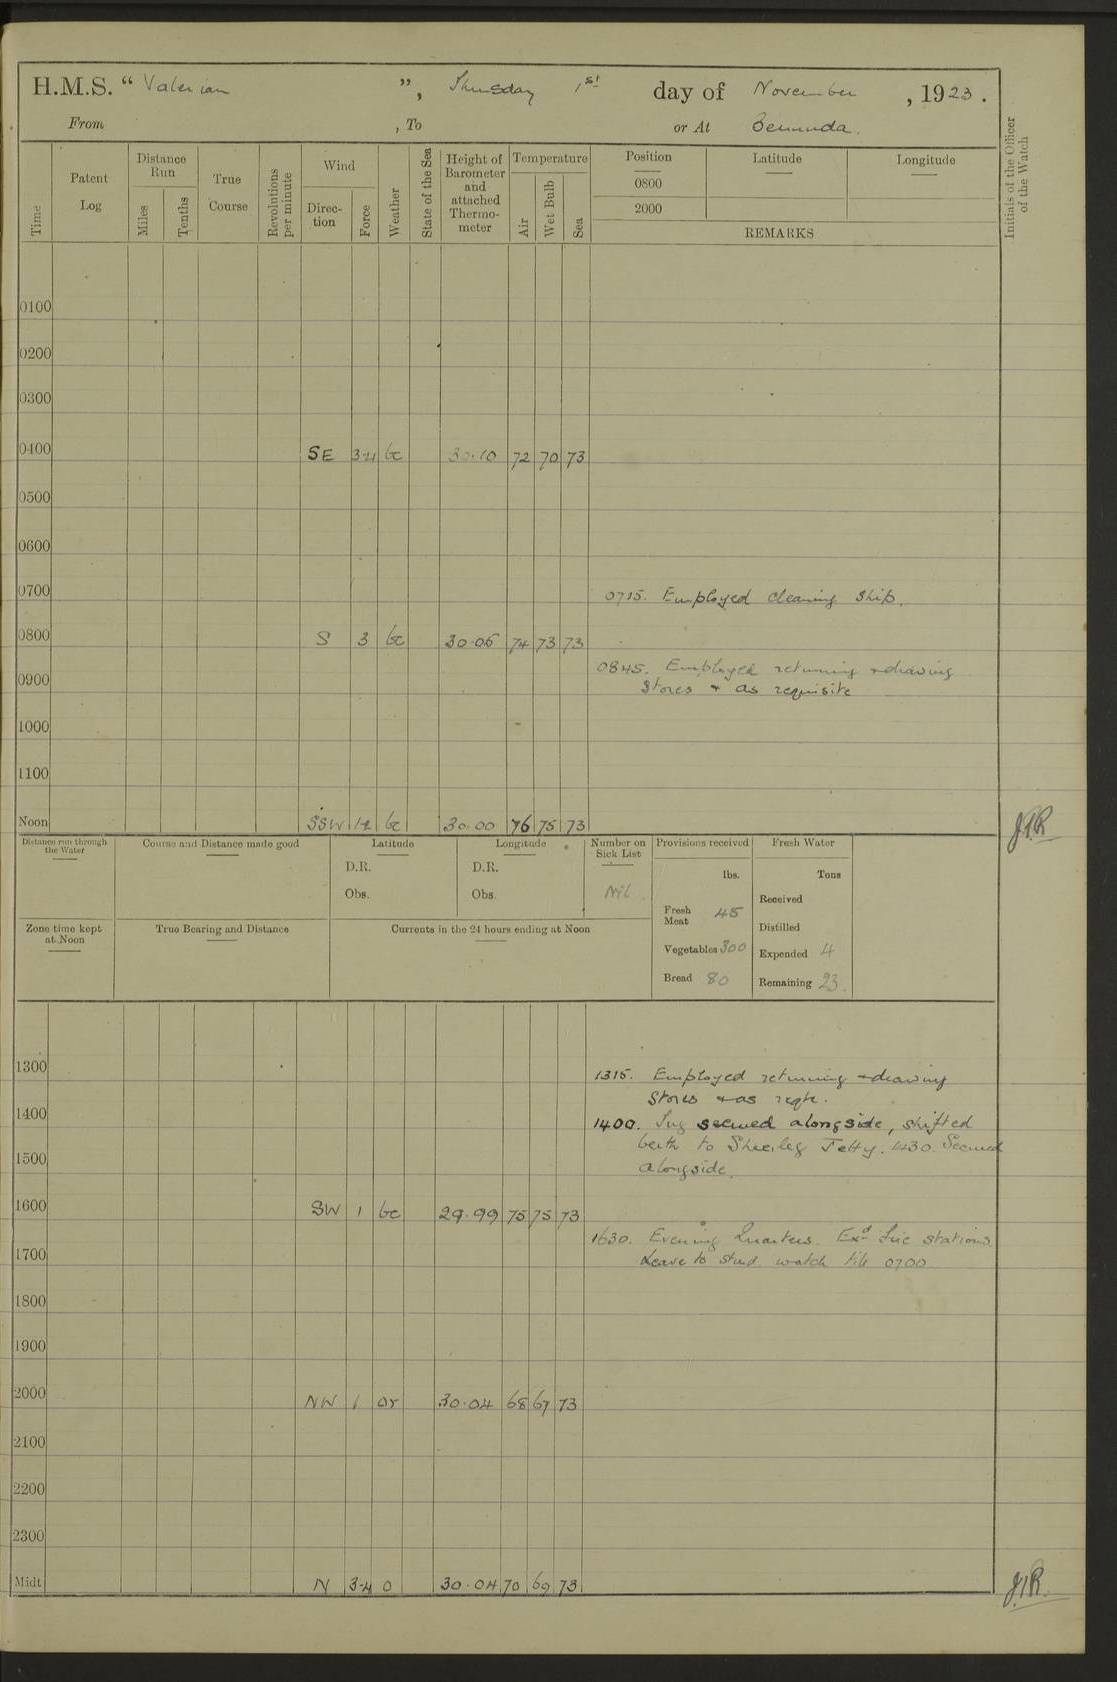 H.M.S. “ Valerian ”, Thursday 1st day of November , 1923 .
From , To or At Bermuda.
Time Patent Log Distance Run Miles Tenths True Course Revolutions per minute Wind Direc-tion Force Weather State of the Sea Height of Barometer and attached Thermo-meter Temperature Air Wet Bulb Sea Position Latitude Longitude Initials of the Officer of the Watch
0800
2000
REMARKS
0100
0200
0300
0400 SE 3-4 bc 30.10 72 70 73
0500
0600
0700 0715. Employed cleaning ship.
0800 S 3 bc 30.06 74 73 73
0845. Employed returning + drawing
0900 Stores + as requisite
1000
1100
Noon SSW 1-2 bc 30.00 76 75 73
Distance run through the Water Course and Distance made good Latitude Longitude Number on Sick List Provisions received Fresh Water
D.R. D.R. lbs. Tons
Obs. Obs. Nil Received
Fresh Meat 45 Distilled
Zone time kept at Noon True Bearing and Distance Currents in the 24 hours ending at Noon
Vegetables 300 Expended 4
Bread 80 Remaining 23.
1300 1315. Employed returning + drawing
Stores + as reqte.
1400 1400. Tug secured alongside, shifted
berth to Sheerleg Jetty. 1430. Secured
1500 alongside.
1600 SW 1 bc 29.99 75 75 73
1630. Evening Quarters. Exd fire stations
1700 Leave to stbd. watch till 0700
1800
1900
2000 NW 1 or 30.04 68 67 73
2100
2200
2300
Midt N 3-4 o 30.04 70 69 73